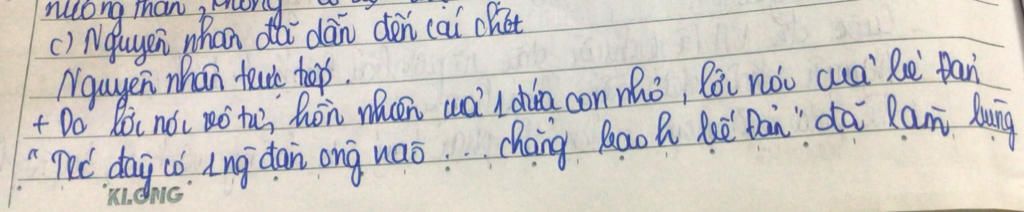 nương thân, không
c) Nguyên nhân đã dẫn đến cái chết
Nguyên nhân trực tiếp.
+ Do lời nói vô tư, hồn nhiên của 1 đứa con nhỏ, lời nói của bé Đản
"Trc đây có 1 ng đàn ông nào ... chẳng bao h bế Đản" đã làm bùng
KLONG